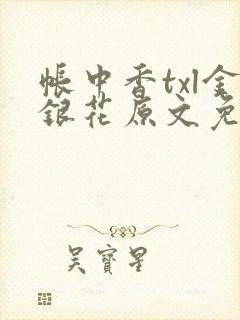 帳中香txl金
銀花原文免
吴寳星